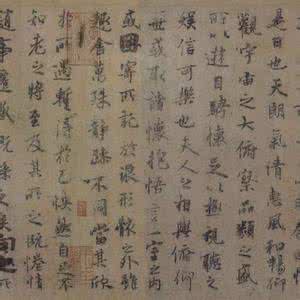 是日也天朗氣清惠風和暢仰
觀宇宙之大俯察品類之盛
所以遊目騁懷足以極視聽之
娛信可樂也夫人之相與俯仰
一世或取諸懷抱悟言一室之內
或因寄所託放浪形骸之外雖
趣舍萬殊靜躁不同當其欣
於所遇暫得於己快然自足不
知老之將至及其所之既惓情
隨事遷感慨係之矣向之所